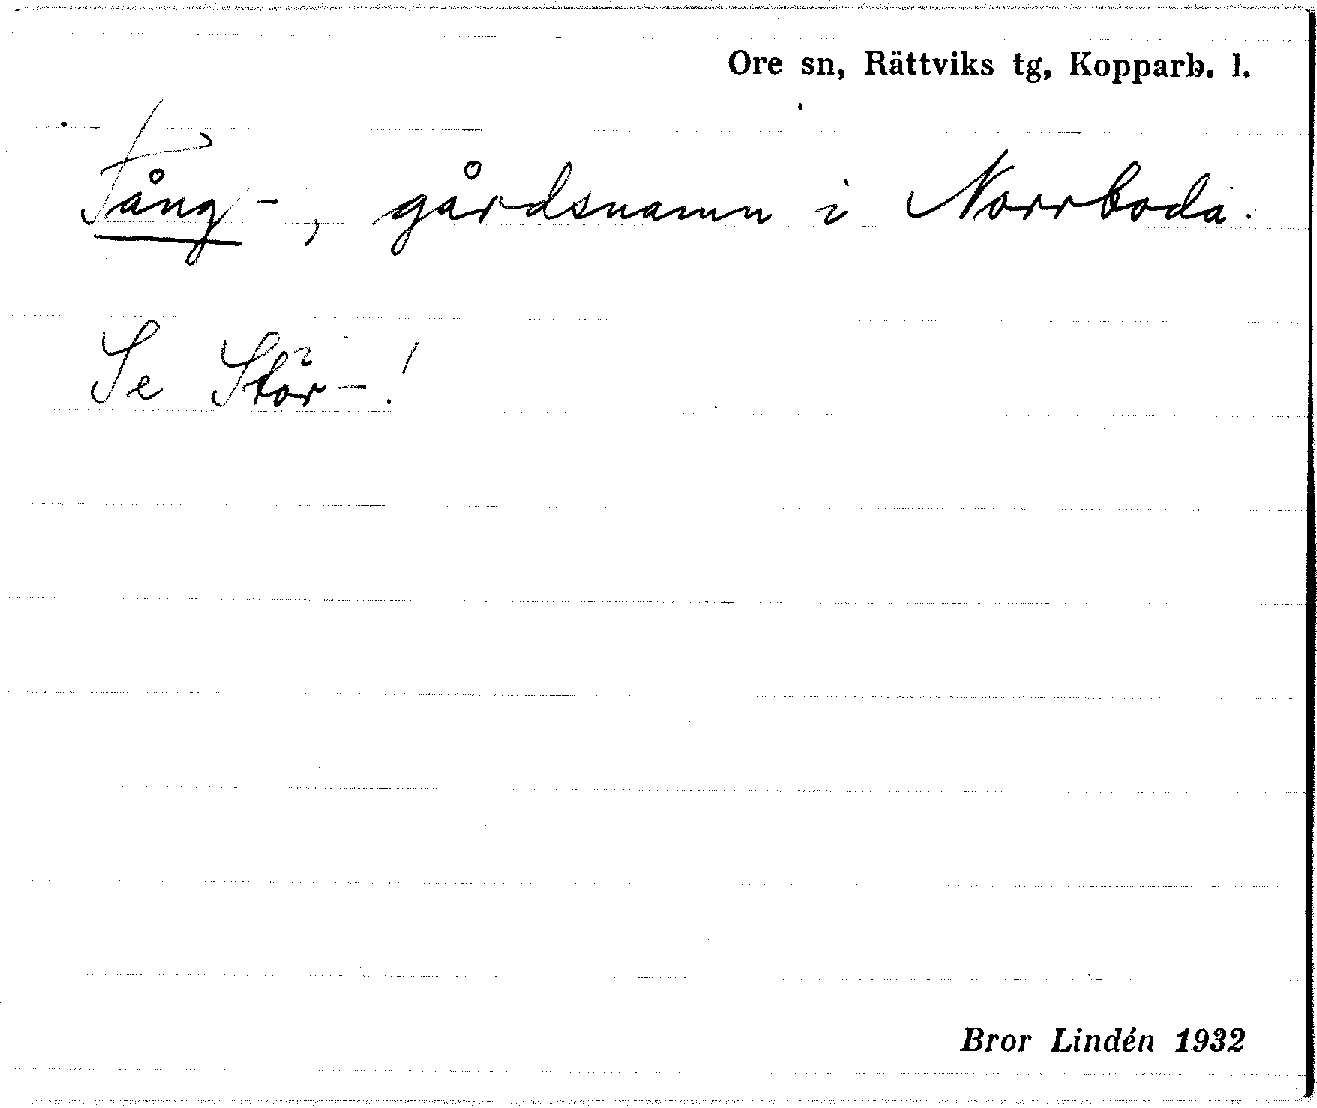 Ore sn, Rättviks tg, Kopparb. l.
Tång-, gårdsnamn i Norrboda.
Se Stör-!
Bror Lindén 1932